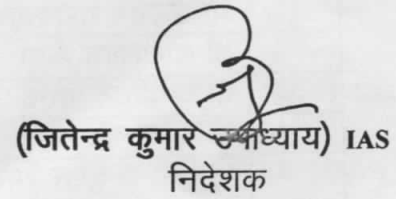 (जितेन्द्र कुमार उपाध्याय) IAS
निदेशक